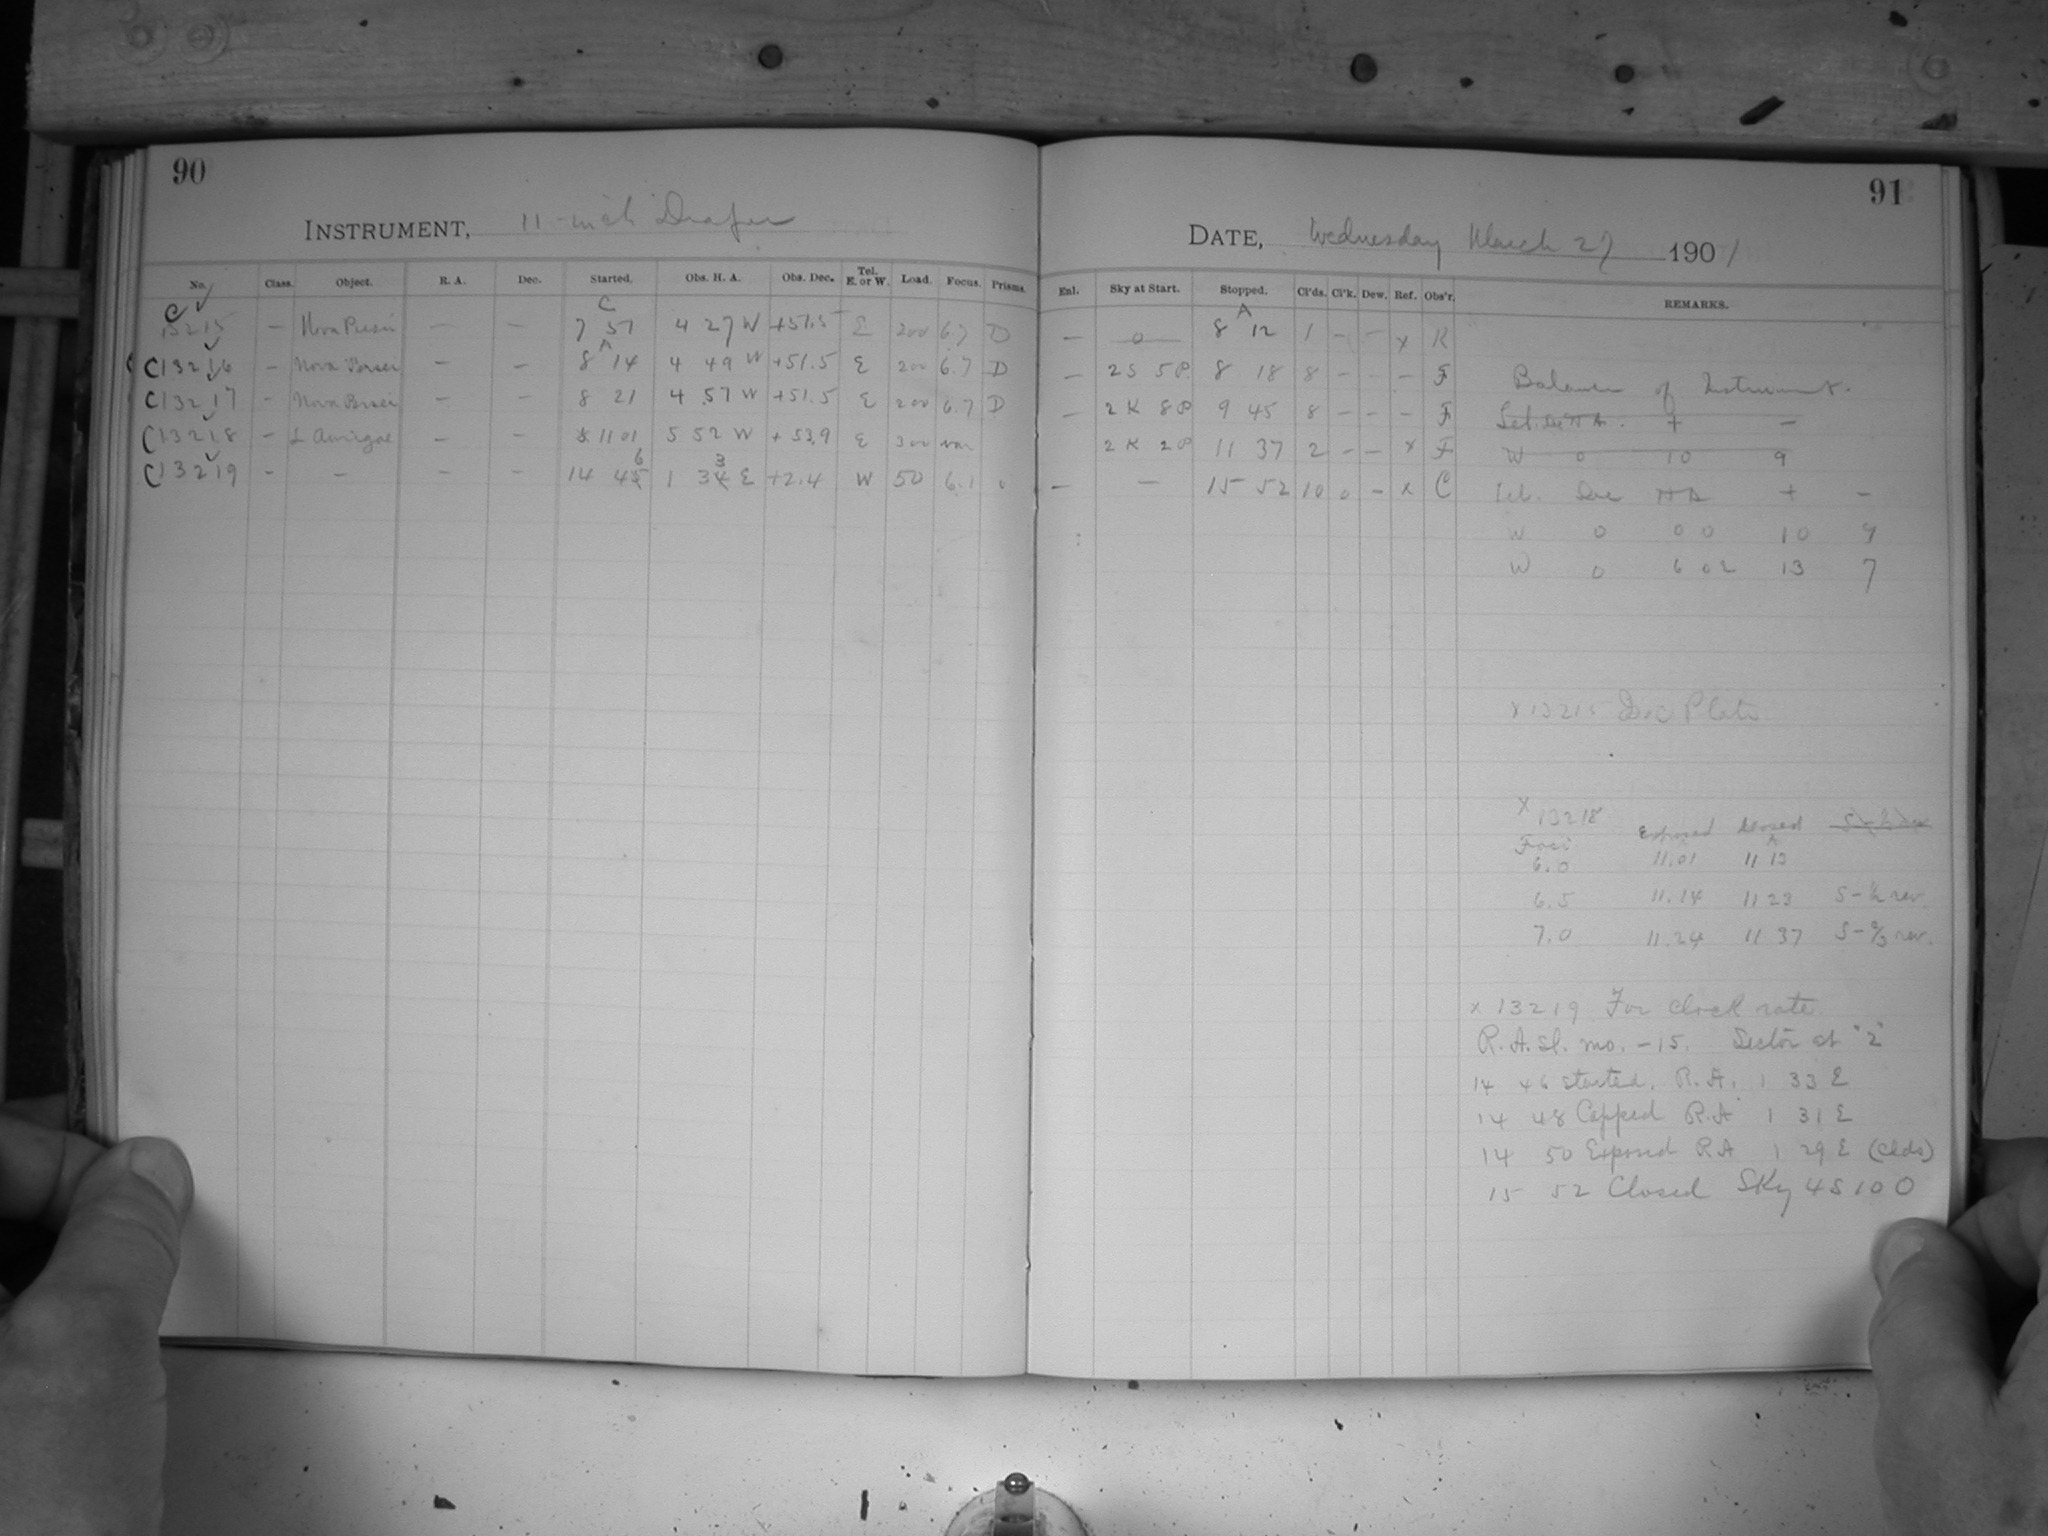 90
91
INSTRUMENT, 11-inch Draper
DATE, Wednesday March 27 1901
No. Class. Object. R. A. Dec. Started. Obs. H. A. Obs. Dec. Tel. E. or W. Load. Focus. Prisms. Enl. Sky at Start. Stopped. Cl'ds. Cl'k. Dew. Ref. Obs'r. REMARKS.
C A
C 13215 — Nova Persei — — 7 57 4 27 W +51.5 E 200 6.7 D — 0 8 12 1 - - x K
A
C13216 — Nova Persei — — 8 14 4 49 W +51.5 E 200 6.7 D — 2S 5P 8 18 8 - - - F
C13217 - Nova Persei — — 8 21 4 57 W +51.5 E 200 6.7 D — 2K 8P 9 45 8 - - - F
C13218 - L Aurigae — — 11 01 5 52 W + 53.9 E 300 var 2K 2P 11 37 2 - - x F
C13219 - — — — 14 46 1 33 E +2.4 W 50 6.1 0 — — 15 52 10 0 - x C
Balance of Instrument.
Tel. Dec HA. + —
W 0 10 9
Tel. Dec HA + —
W 0 0 0 10 9
W 0 6 02 13 7
x 13215 Plate
x 13218
Foci Exposed Closed
A
6.0 11.01 11 13
6.5 11.14 11 23 S-½ rev.
7.0 11.24 11 37 S-⅔ rev.
x 13219 For clock rate.
R.A. sl. mo. -15. Sector at "2"
14 46 started, R.A. 1 33 E
14 48 Capped R.A 1 31 E
14 50 Exposed R A 1 29 E (Clds)
15 52 Closed Sky 4S 10 0